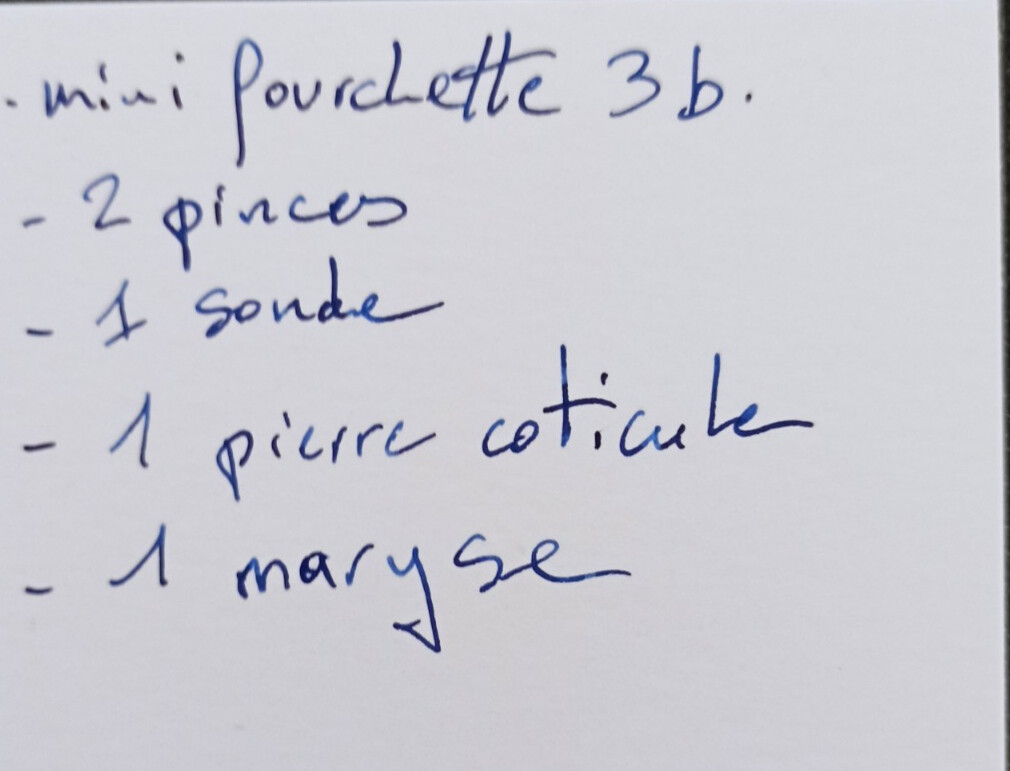 - mini fourchette 3 b.
- 2 pinces
- 1 sonde
- 1 pierre coticule
- 1 maryse